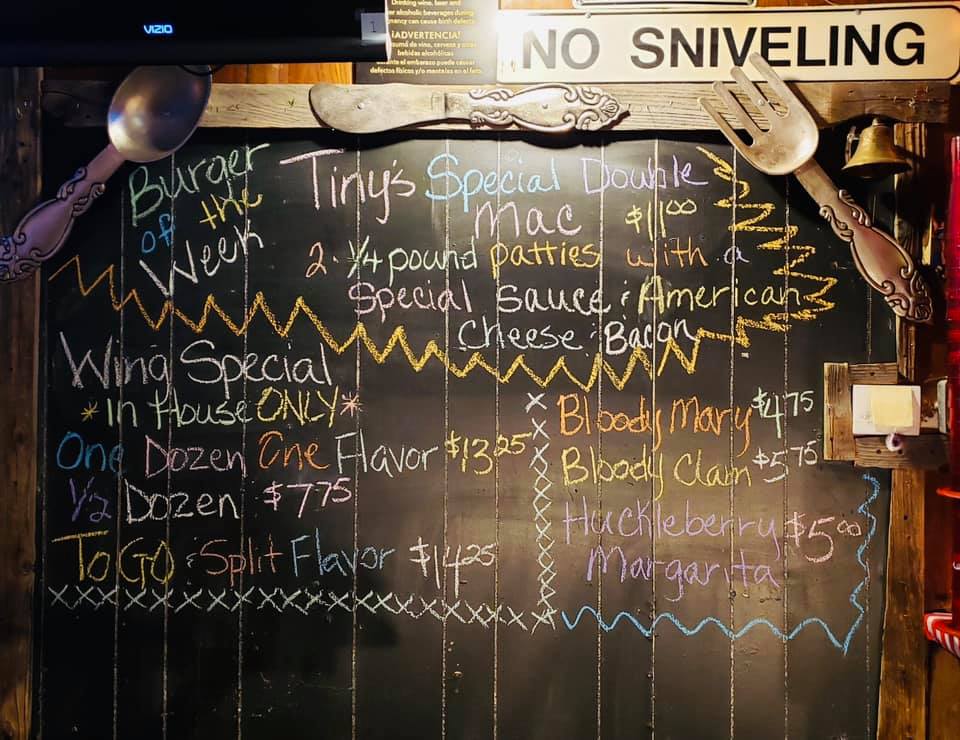 VIZIO
1
Drinking wine, beer and
alcoholic beverages during
can cause birth defects
¡ADVERTENCIA!
de vino, cerveza y otras
bebidas alcohólicas
el embarazo puede causar
defectos físicos y/o mentales en el feto
NO SNIVELING
Burger
of the
Week
Tiny's Special Double
Mac $11.00
2 · 1/4 pound patties with a
Special Sauce & American
Cheese & Bacon
Wing Special
*In House ONLY*
One Dozen One Flavor $13.25
1/2 Dozen $7.75
To Go & Split Flavor $14.25
Bloody Mary $4.75
Bloody Clam $5.75
Huckleberry $5.00
Margarita